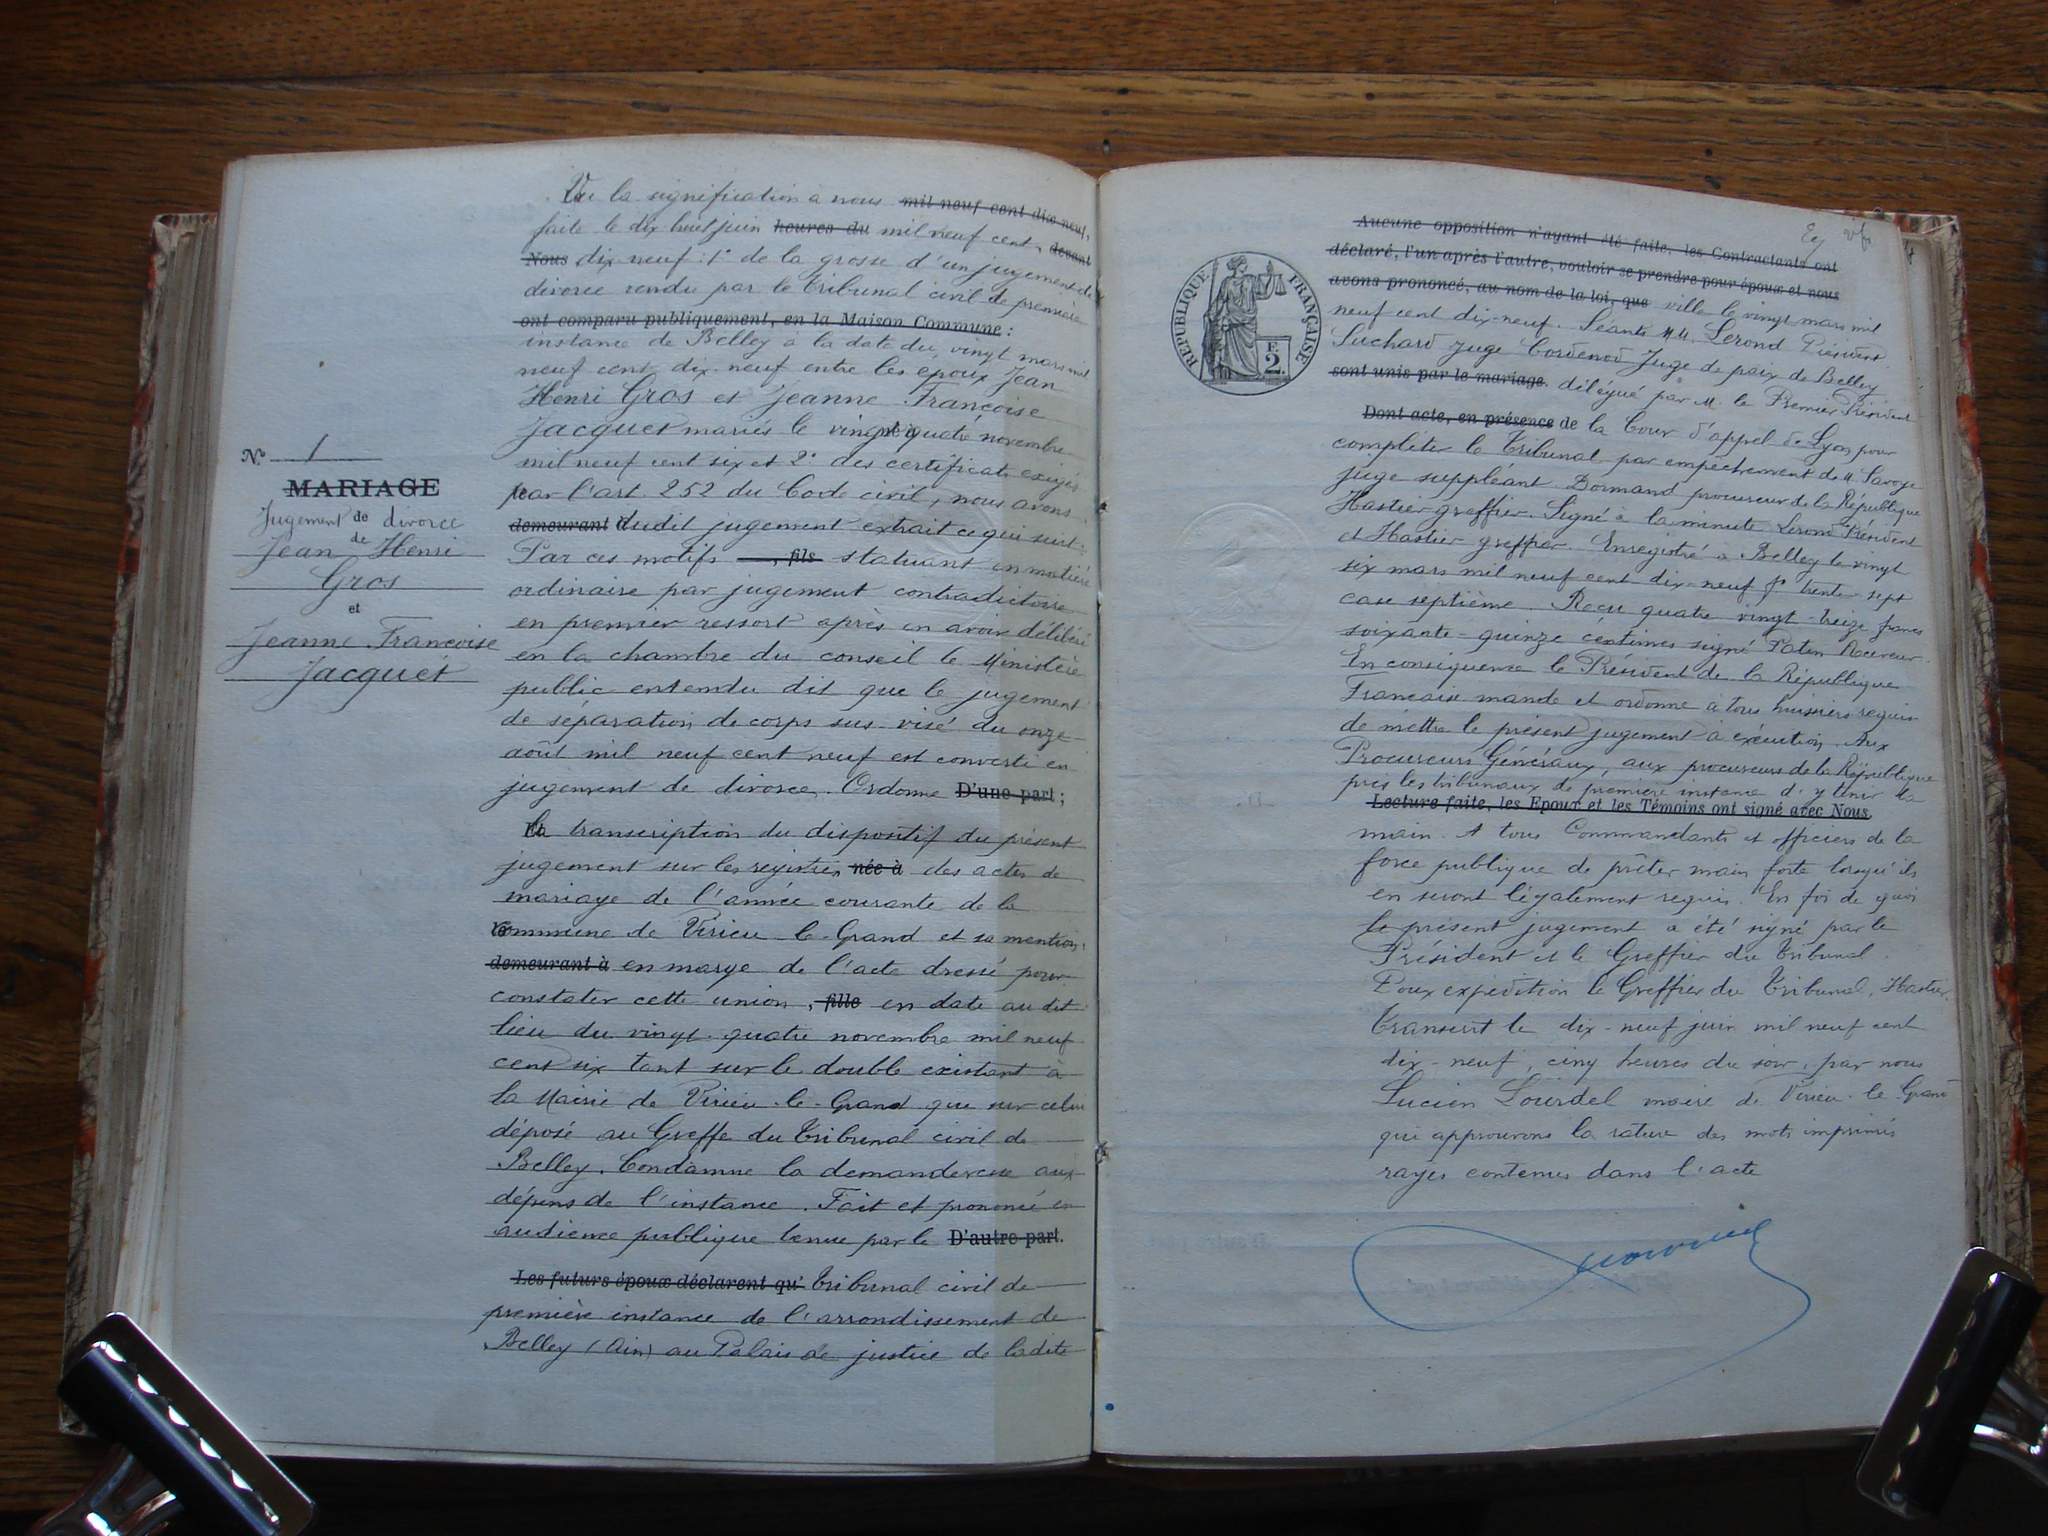 Vu la signification à nous mil neuf cent dix neuf,
faite le dix huit juin heures du mil neuf cent, devant
Nous dix neuf : 1° de la grosse d'un jugement de
divorce rendu par le Tribunal civil de première
ont comparu publiquement, en la Maison Commune :
instance de Belley à la date du vingt mars mil
neuf cent dix-neuf entre les époux Jean
Henri Gros et Jeanne Françoise
Jacquet mariés le vingt quatre novembre
mil neuf cent six et 2° des certificats exigés
par l'art. 252 du Code civil, nous avons
demeurant dudit jugement extrait ce qui suit :
Par ces motifs , fils statuant en matière
ordinaire par jugement contradictoire
en premier ressort après en avoir délibéré
en la chambre du conseil le Ministère
public entendu dit que le jugement
de séparation de corps sus-visé du onze
août mil neuf cent neuf est converti en
jugement de divorce. Ordonne D'une part ;
la transcription du dispositif du présent
jugement sur les registres née à des actes de
mariage de l'année courante de la
commune de Virieu-le-Grand et sa mention
demeurant à en marge de l'acte dressé pour
constater cette union, fille en date au dit
lieu du vingt-quatre novembre mil neuf
cent six tant sur le double existant à
la Mairie de Virieu-le-Grand que sur celui
déposé au Greffe du Tribunal civil de
Belley. Condamne la demanderesse aux
dépens de l'instance. Fait et prononcé en
audience publique tenue par le D'autre part.
Les futurs époux déclarent qu' Tribunal civil de
première instance de l'arrondissement de
Belley (Ain) au Palais de justice de ladite
N° 1
MARIAGE
Jugement de divorce
de
Jean Henri
Gros
et
Jeanne Françoise
Jacquet
RÉPUBLIQUE FRANÇAISE
F.
2.
Aucune opposition n'ayant été faite, les Contractants ont
déclaré, l'un après l'autre, vouloir se prendre pour époux et nous
avons prononcé, au nom de la loi, que ville le vingt mars mil
neuf cent dix-neuf. Séants MM. Lerond Président
Suchard Juge Cordenod Juge de paix de Belley
sont unis par le mariage. délégué par M. le Premier Président
Dont acte, en présence de la Cour d'appel de Lyon pour
compléter le Tribunal par empêchement de M. Savoye
juge suppléant Dormand procureur de la République
Hastier greffier. Signé à la minute Lerond Président
et Hastier greffier. Enregistré à Belley le vingt
six mars mil neuf cent dix-neuf f° trente-sept
case septième. Reçu quatre vingt-treize francs
soixante-quinze centimes signé Paten Receveur.
En conséquence le Président de la République
Française mande et ordonne à tous huissiers requis
de mettre le présent jugement à exécution. Aux
Procureurs Généraux, aux procureurs de la République
près les tribunaux de première instance d'y tenir la
Lecture faite, les Epoux et les Témoins ont signé avec Nous,
main. A tous Commandants et officiers de la
force publique de prêter main forte lorsqu'ils
en seront légalement requis. En foi de quoi
le présent jugement a été signé par le
Président et le Greffier du Tribunal.
Pour expédition le Greffier du Tribunal, Hastier.
Transcrit le dix-neuf juin mil neuf cent
dix-neuf, cinq heures du soir, par nous
Lucien Lourdel maire de Virieu-le-Grand
qui approuvons la rature des mots imprimés
rayés contenus dans l'acte